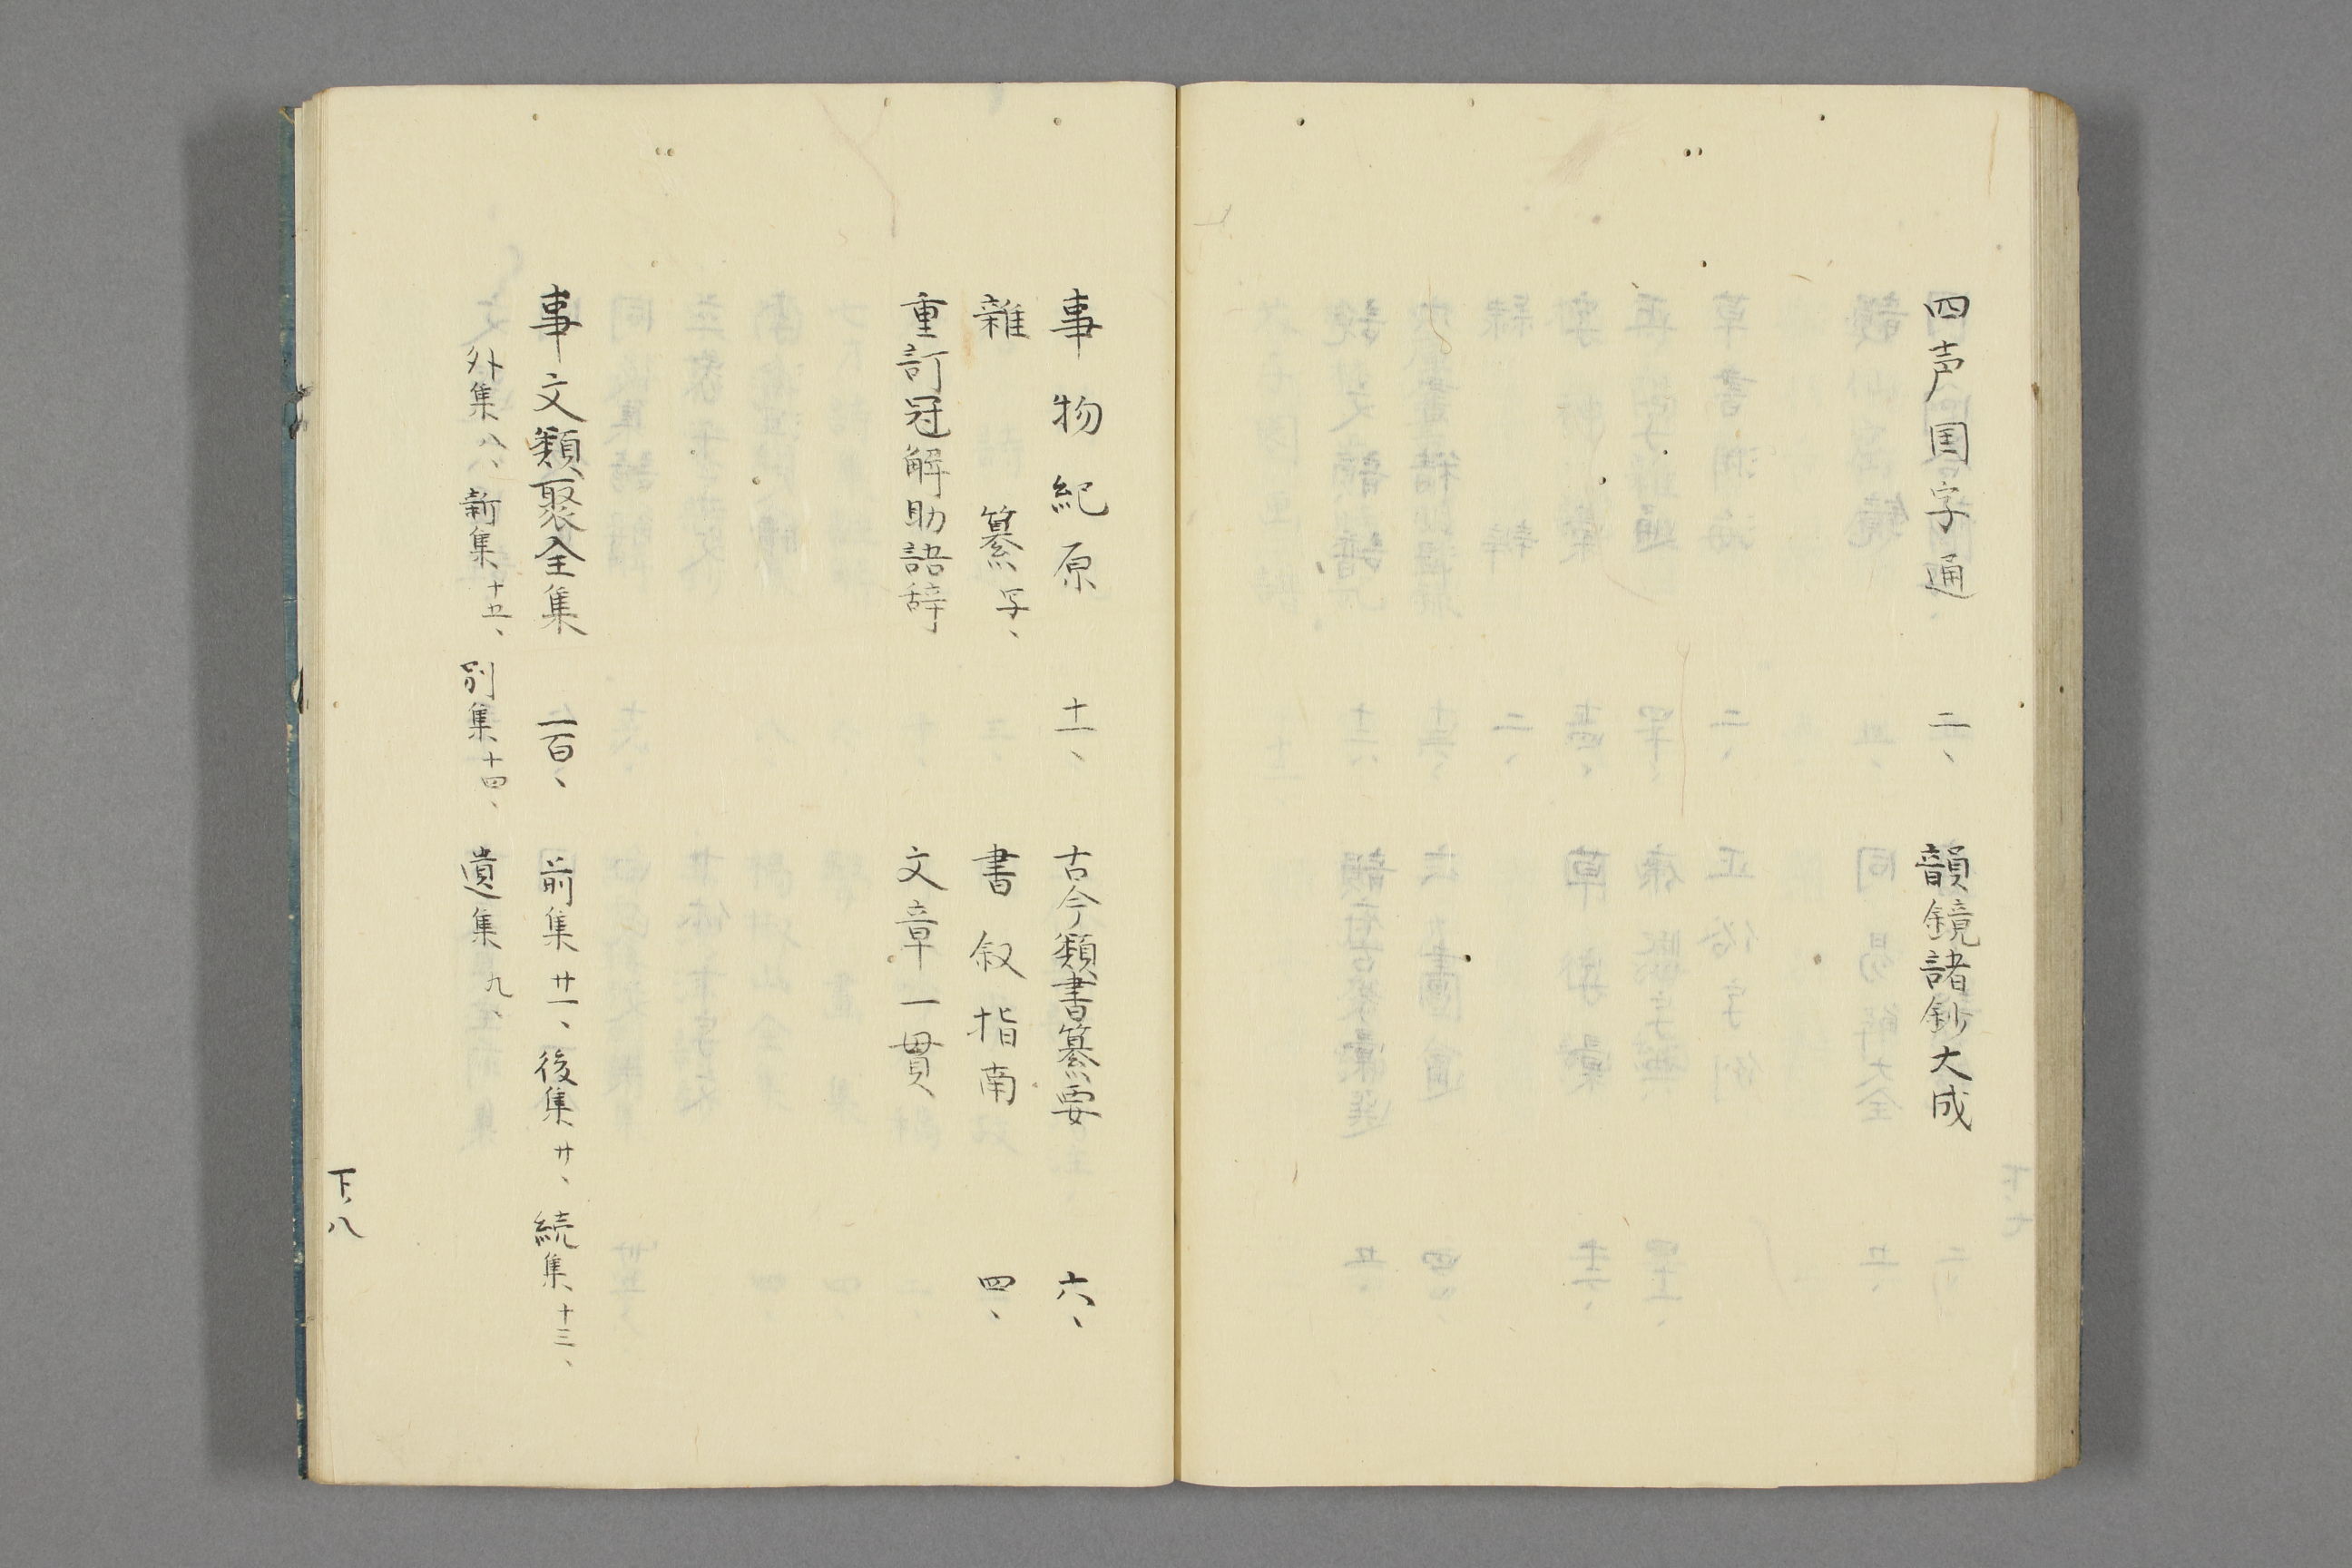 四声国字通 二、 韻鏡諸鈔大成
事物紀原 十一、 古今類書纂要 六、
雑纂 写、 書叙指南 四、
重訂冠解助語辞 文章一貫
事文類聚全集 一百、 前集廿一、後集廿、続集十三、
外集八、新集十五、別集十四、遺集九、
下、八